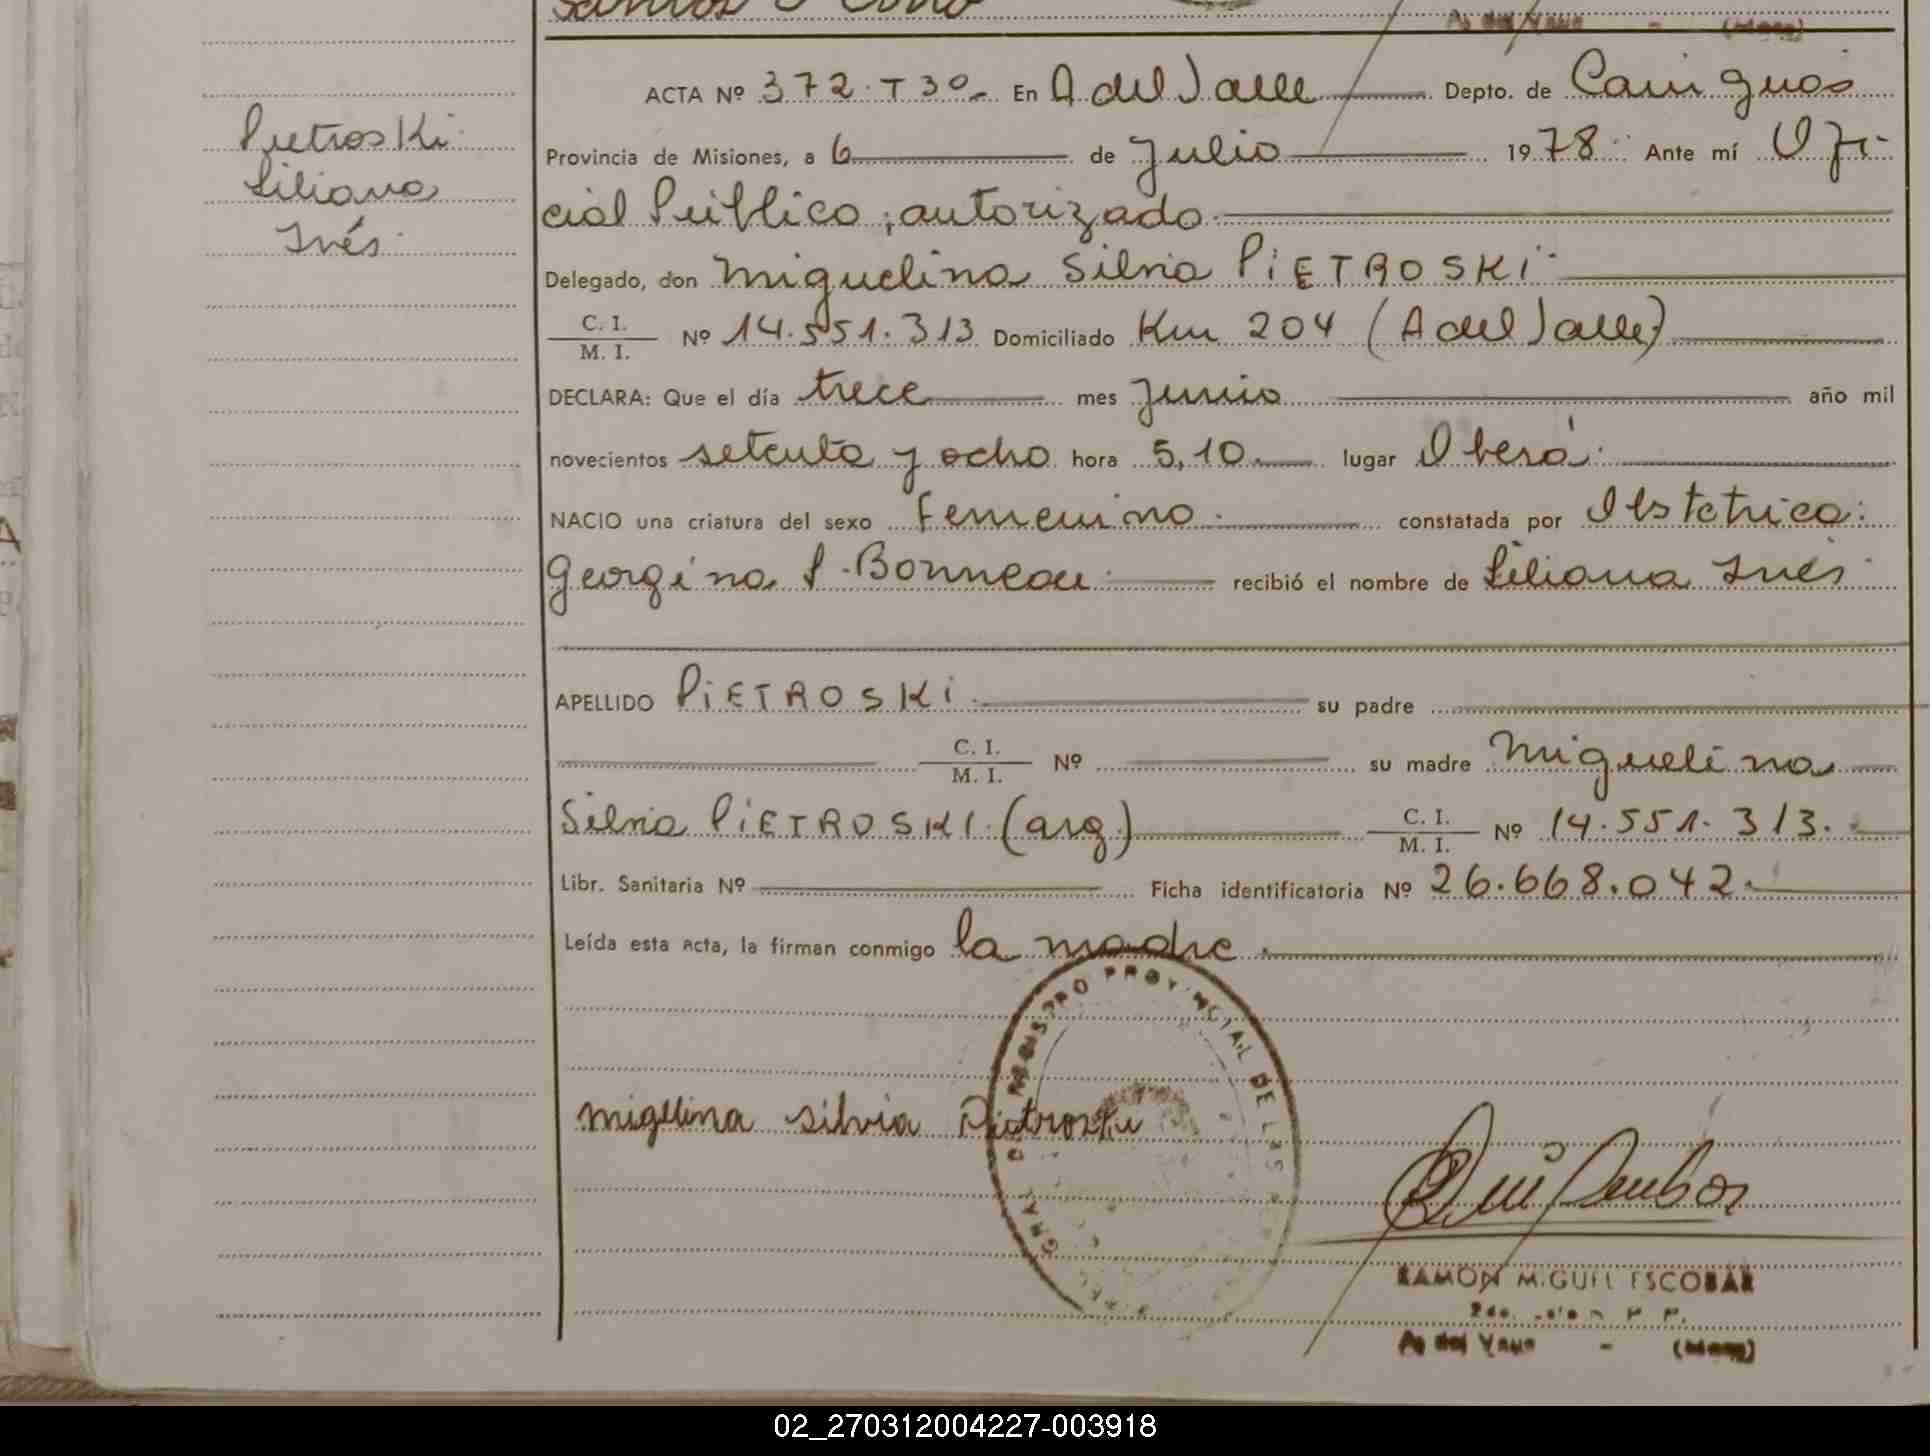 ACTA Nº 372. T 3º. En A del Valle Depto. de Cainguás
Provincia de Misiones, a 6 de Julio 1978. Ante mí Ofi-
cial Público, autorizado.
Pietroski
Liliana
Inés.
Delegado, don Miguelina Silvia PiETROSKi.
C. I.
M. I. Nº 14.551.313 Domiciliado Km 204 (A del Valle)
DECLARA: Que el día trece mes Junio año mil
novecientos setenta y ocho hora 5,10 lugar Oberá.
NACIO una criatura del sexo Femenino. constatada por Obstetrica:
Georgina P. Bonneau. recibió el nombre de Liliana Inés.
APELLIDO PiETROSKi. su padre
C. I.
M. I. Nº su madre Miguelina
Silvia PiETROSKI. (arg.) C. I.
M. I. Nº 14.551.313.
Libr. Sanitaria Nº Ficha identificatoria Nº 26.668.042.
Leída esta Acta, la firman conmigo la madre.
REGISTRO PROVINCIAL DE LAS
GRAL
migelina silvia Pietroski
RAMON MIGUEL ESCOBAR
Aº del Valle - (Mnes)
02_270312004227-003918